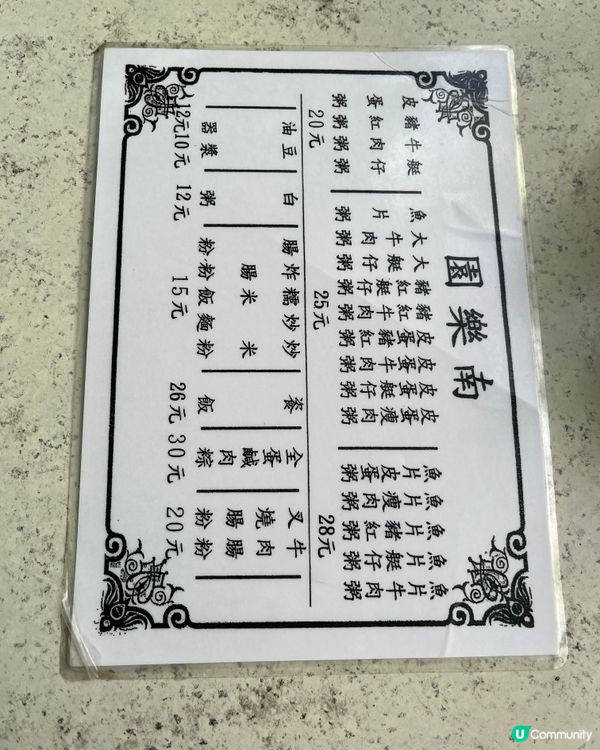 南樂園
魚片牛肉粥
魚片艇仔粥
魚片豬紅粥
魚片瘦肉粥
魚片皮蛋粥
28元
皮蛋瘦肉粥
皮蛋艇仔粥
皮蛋牛肉粥
皮蛋豬紅粥
豬紅牛肉粥
豬紅艇仔粥
大艇仔粥
大牛肉粥
魚片粥
25元
艇仔粥
牛肉粥
豬紅粥
皮蛋粥
20元
牛肉腸粉
叉燒腸粉
20元
全蛋鹹肉粽
30元
粢飯
26元
炒米粉
炒麵
糯米飯
炸腸粉
腸粉
15元
白粥
12元
豆漿
10元
油器
12元
U Community